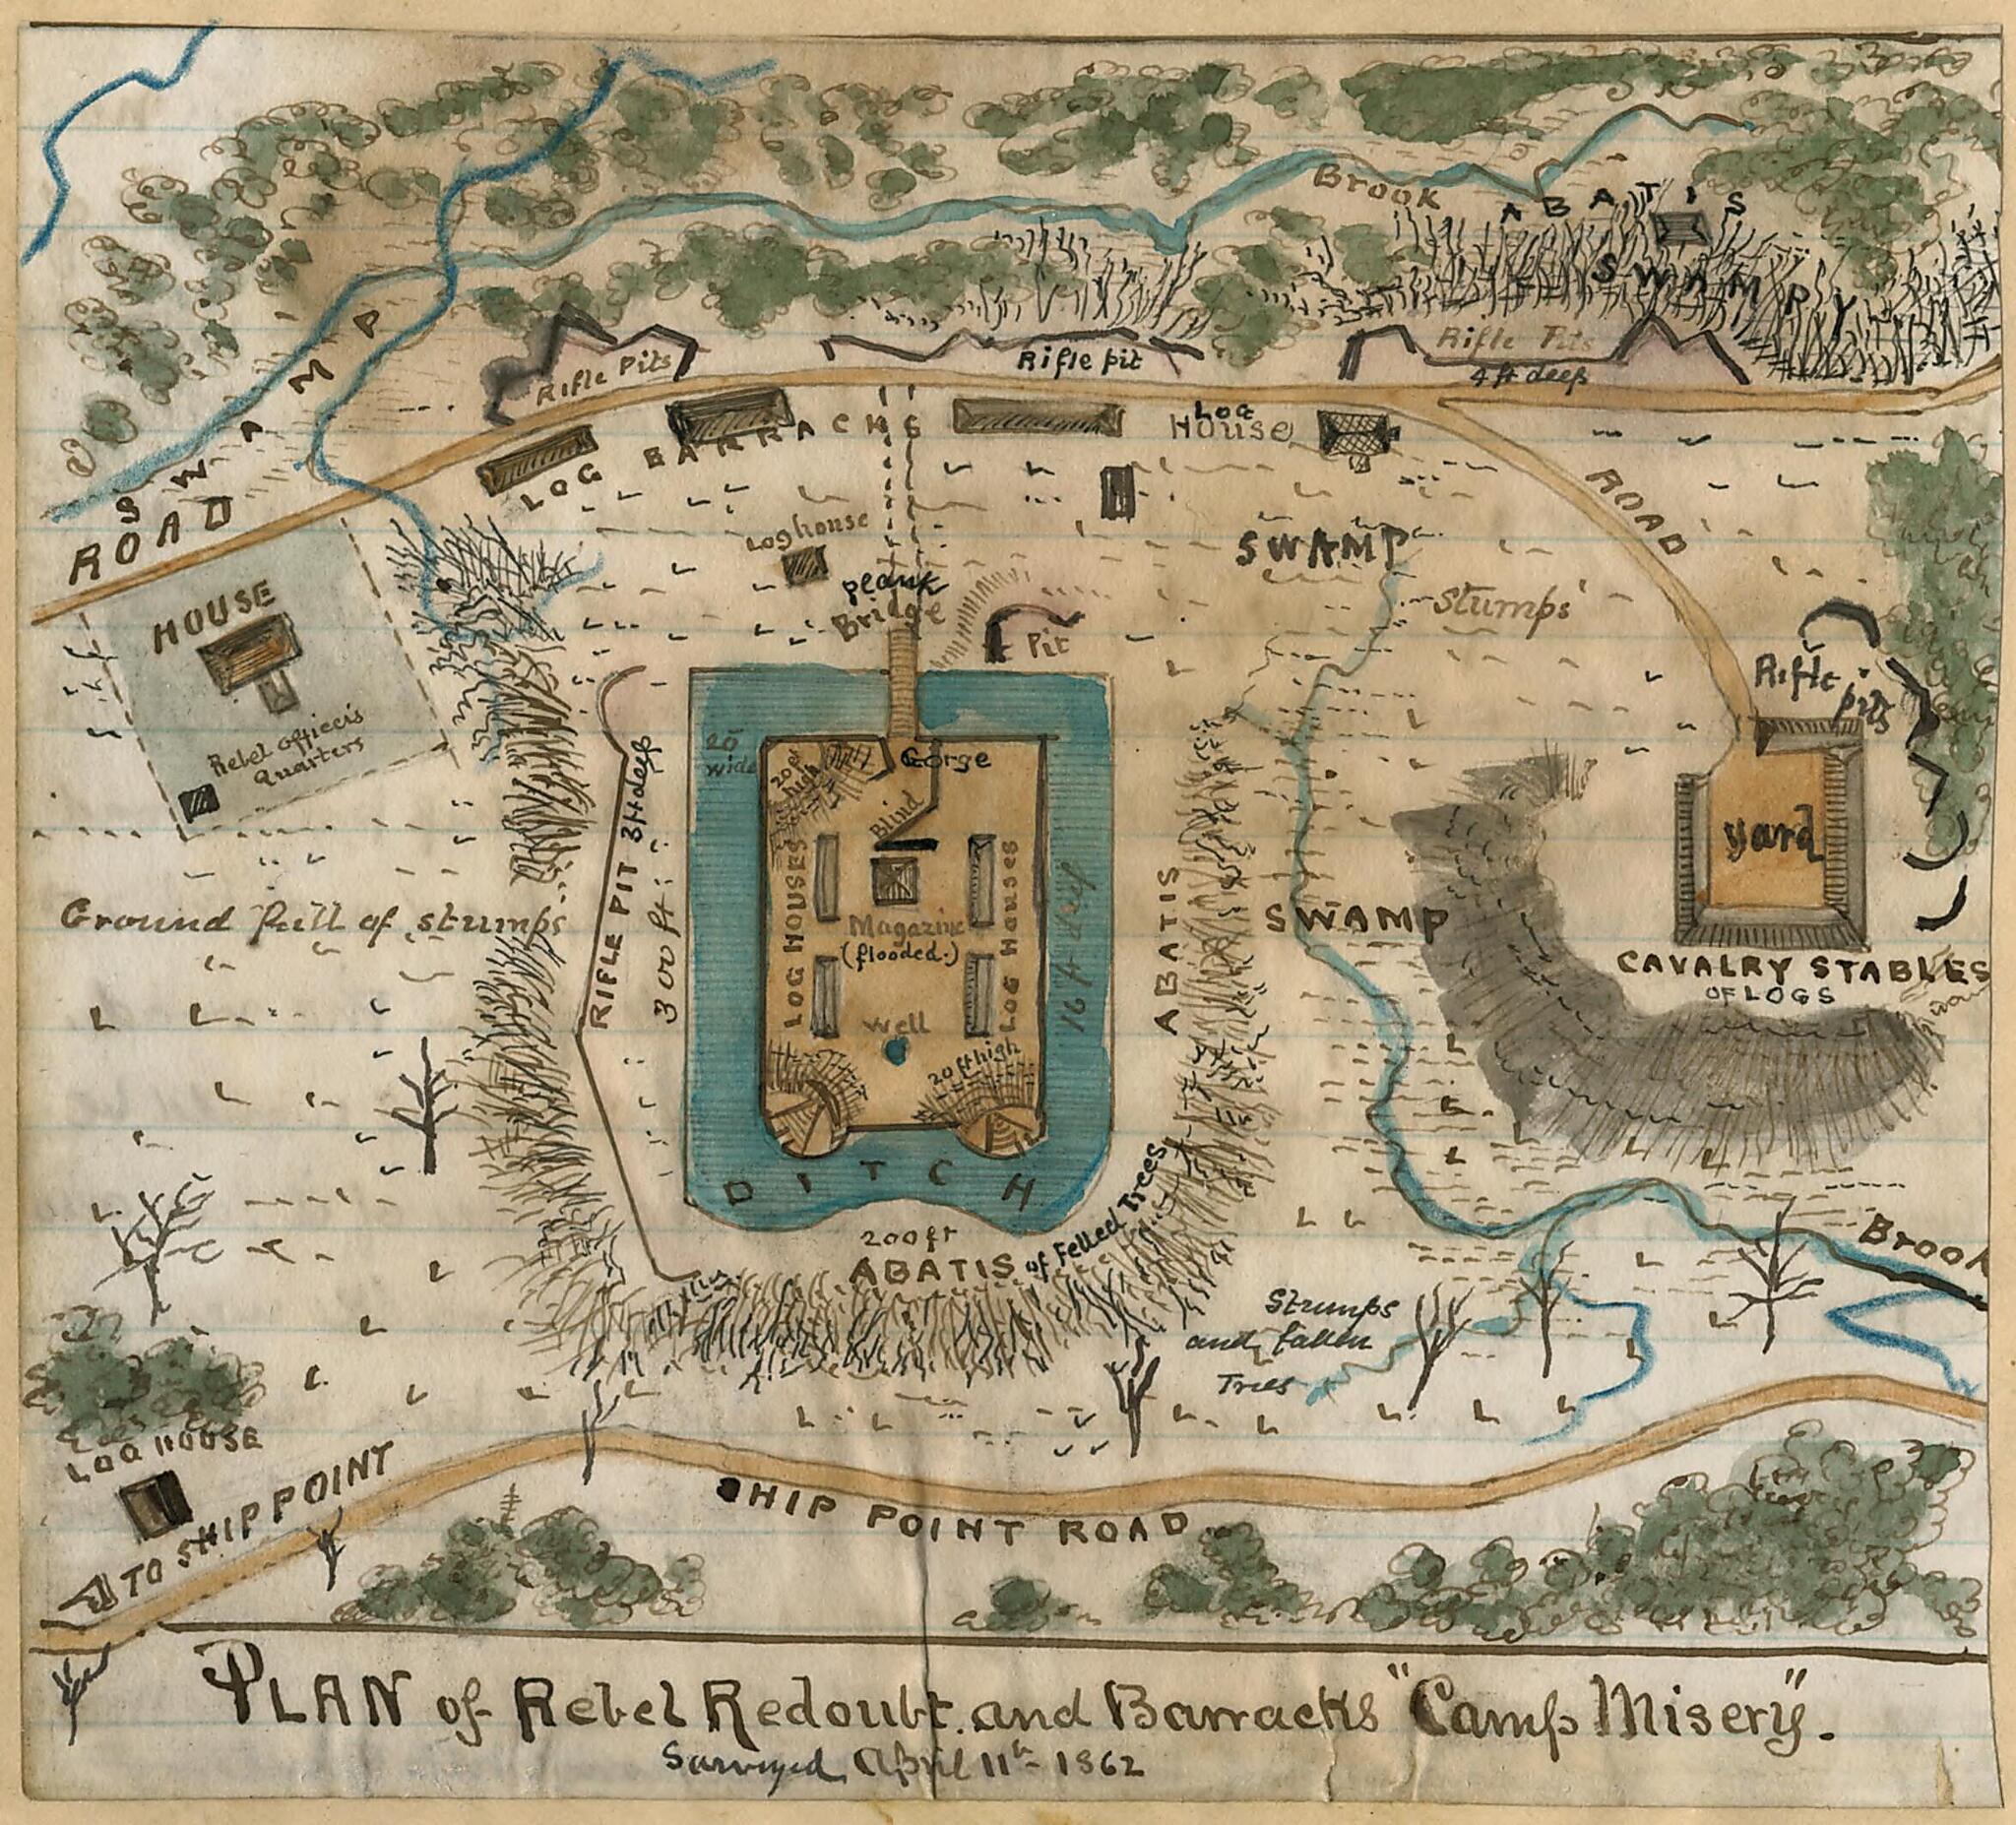 Brook
ABATIS
SWAMPY
SWAMP
Rifle Pits
Rifle pit
Rifle Pits
4 ft deep
LOG BARRACKS
LOG
HOUSE
ROAD
ROAD
Log house
plank
Bridge
Pit
SWAMP
Stumps
HOUSE
Rebel officers
quarters
Rifle
pits
20
wide
20 ft
high
Gorge
Blind
yard
RIFLE PIT 3 ft deep
300 ft.
LOG HOUSES
Magazine
(flooded.)
LOG HOUSES
16 ft deep
ABATIS
SWAMP
Ground full of stumps
CAVALRY STABLES
OF LOGS
Well
20 ft high
DITCH
200 ft
ABATIS of Felled Trees
Brook
Stumps
and fallen
Trees
LOG HOUSE
TO SHIP POINT
SHIP POINT ROAD
PLAN of Rebel Redoubt and Barracks "Camp Misery".
Surveyed April 11th 1862